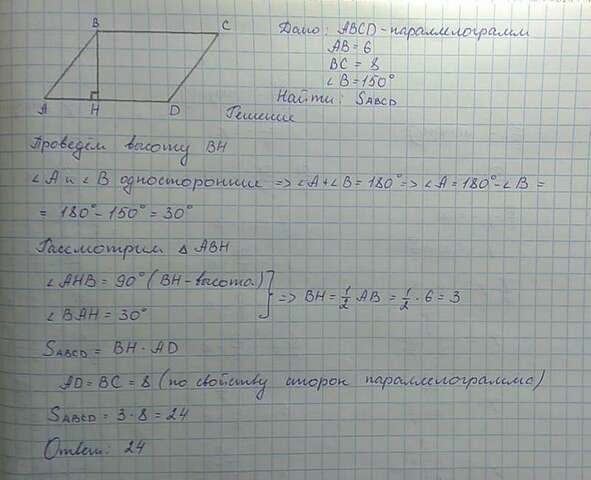 B C
A H D
Дано: ABCD - параллелограмм
AB = 6
BC = 8
∠B = 150°
Найти: SABCD
Решение
Проведём высоту BH
∠A и ∠B односторонние => ∠A + ∠B = 180° => ∠A = 180° - ∠B =
= 180° - 150° = 30°
Рассмотрим △ ABH
∠AHB = 90° (BH - высота)
∠BAH = 30°
} => BH = 1/2 AB = 1/2 · 6 = 3
SABCD = BH · AD
AD = BC = 8 (по свойству сторон параллелограмма)
SABCD = 3 · 8 = 24
Ответ: 24